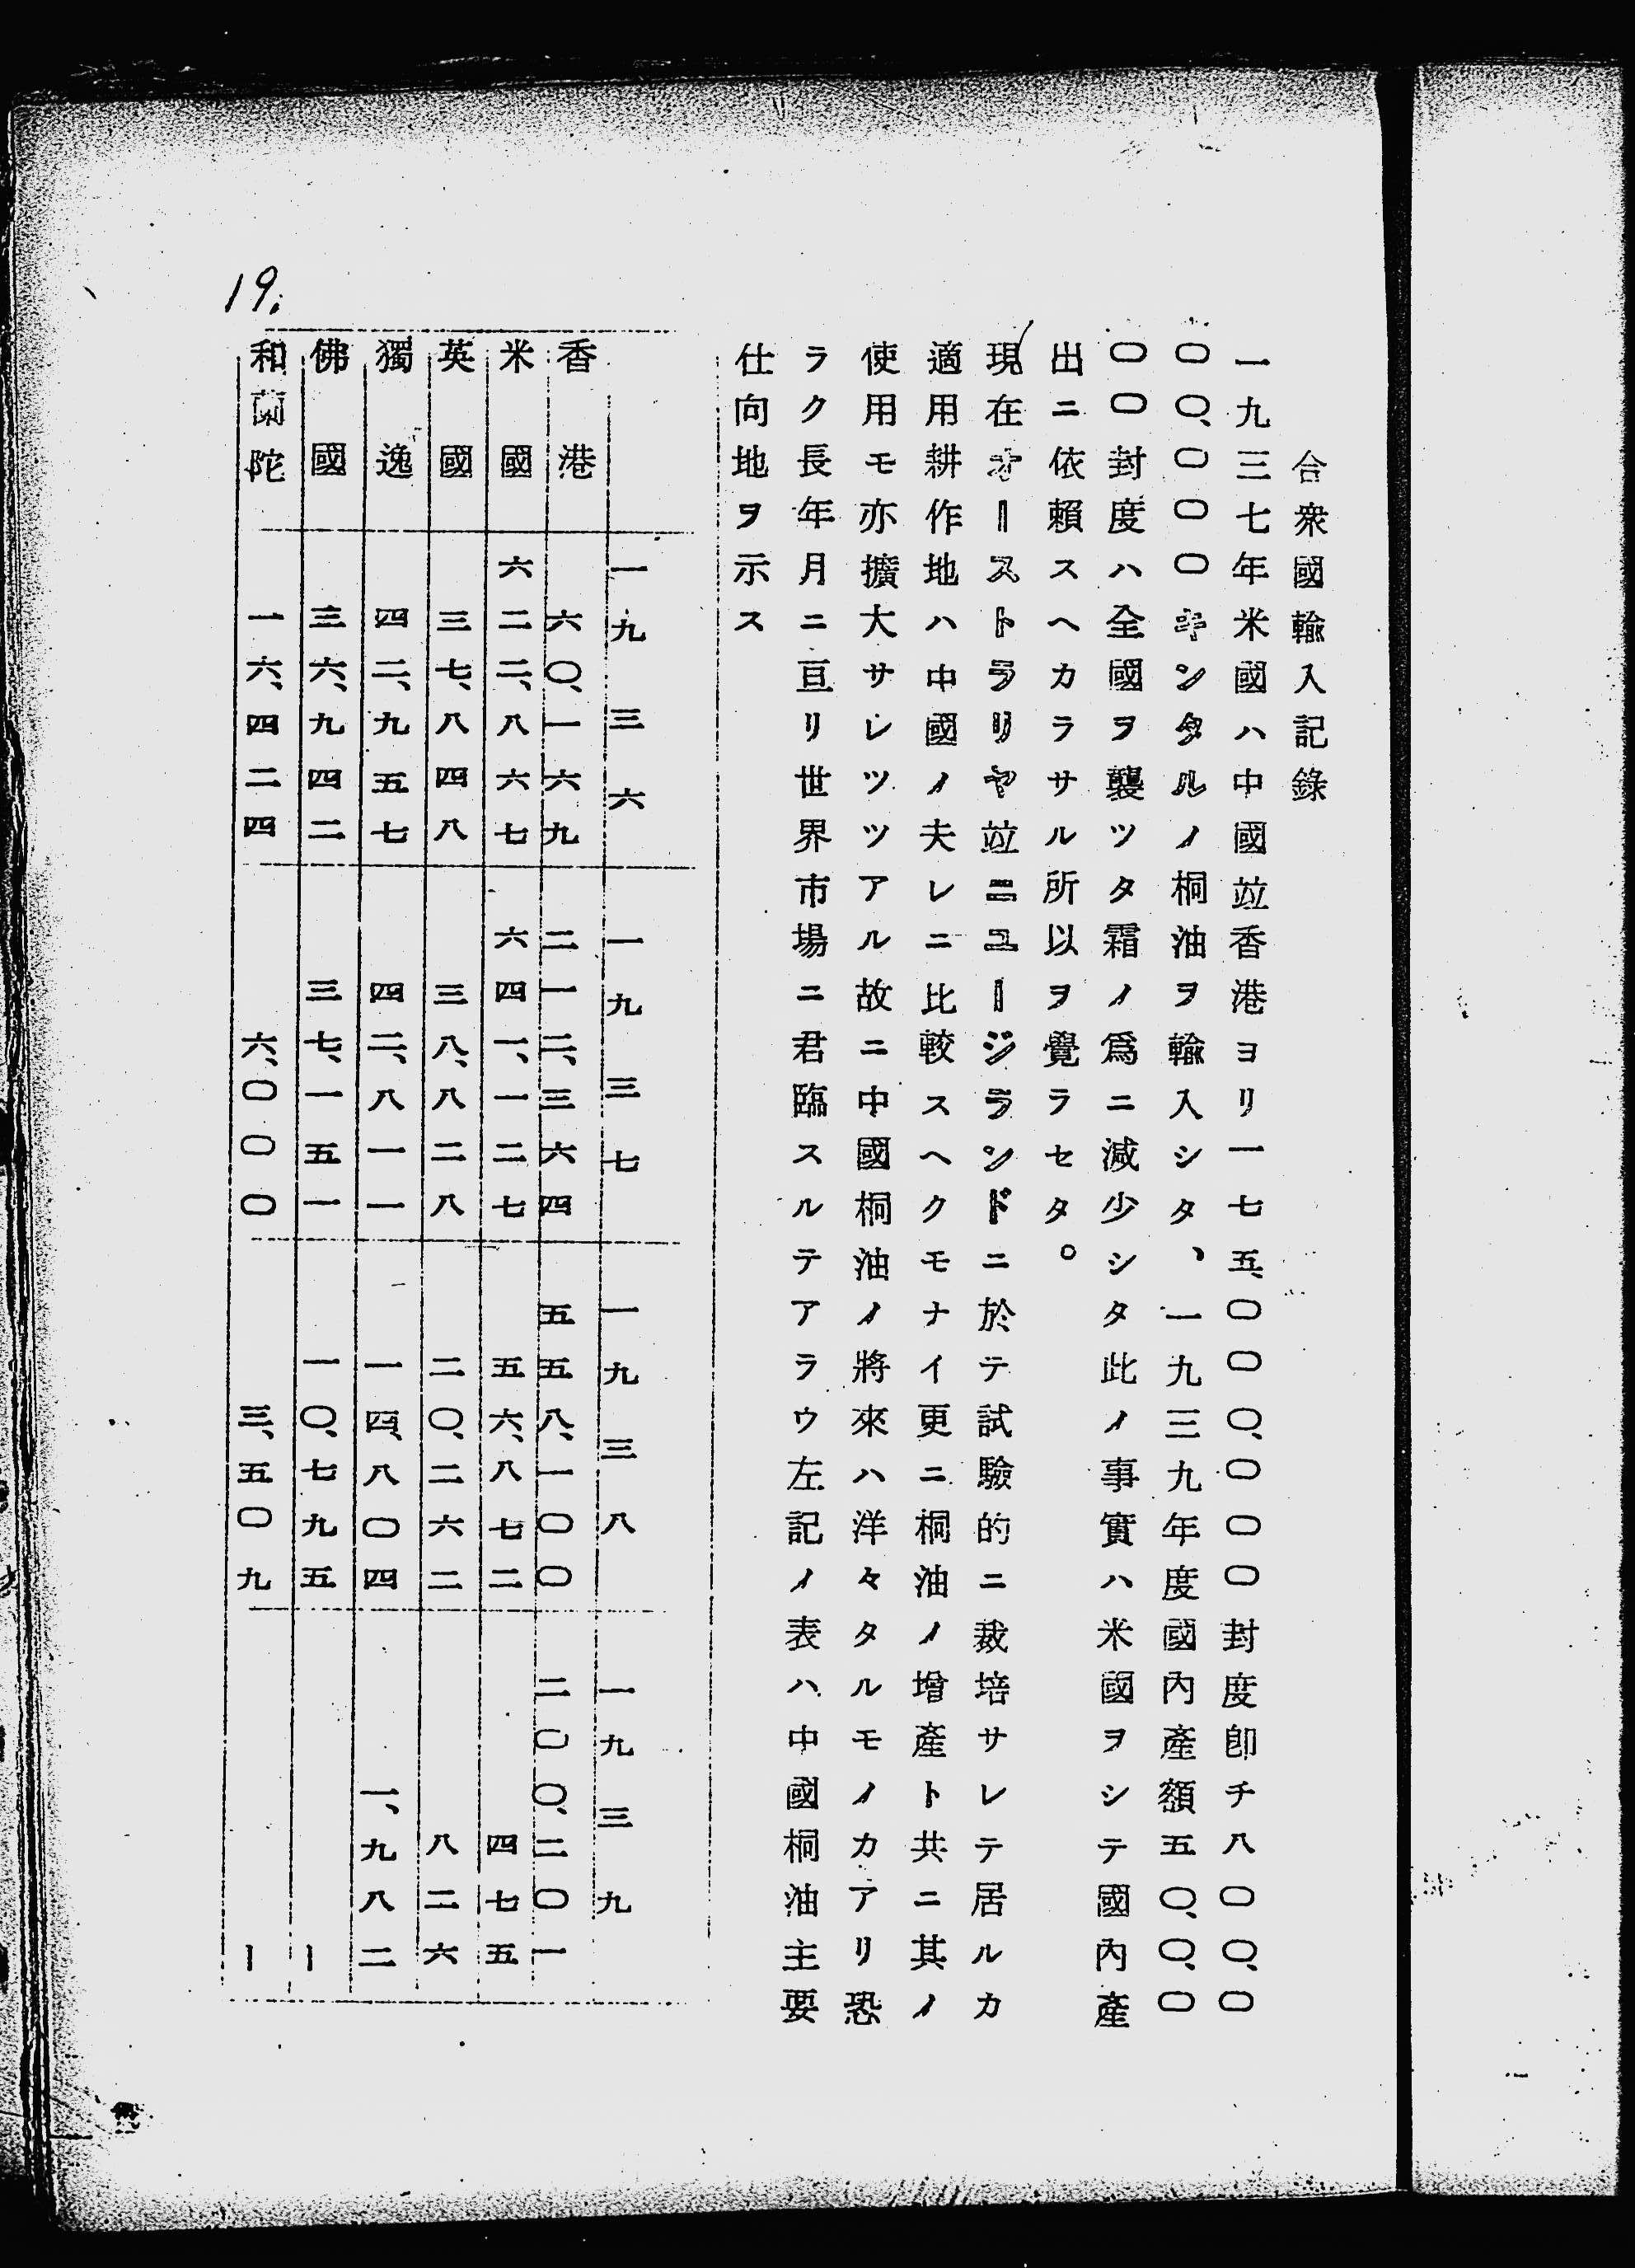 合衆國輸入記錄
一九三七年米國ハ中國竝香港ヨリ一七五、〇〇〇、〇〇〇封度卽チ八〇〇、〇
〇〇、〇〇〇キンタルノ桐油ヲ輸入シタ、一九三九年度國內產額五〇、〇、〇
〇〇封度ハ全國ヲ襲ツタ霜ノ爲ニ減少シタ此ノ事實ハ米國ヲシテ國內產
出ニ依賴スヘカラサル所以ヲ覺ラセタ。
現在オーストラリヤ竝ニユージランドニ於テ試驗的ニ裁培サレテ居ルカ
適用耕作地ハ中國ノ夫レニ比較スヘクモナイ更ニ桐油ノ增產ト共ニ其ノ
使用モ亦擴大サレツツアル故ニ中國桐油ノ將來ハ洋々タルモノカアリ恐
ラク長年月ニ亘リ世界市場ニ君臨スルテアラウ左記ノ表ハ中國桐油主要
仕向地ヲ示ス
一九三六 一九三七 一九三八 一九三九
香港 六〇、一六九 二一二、三六四 五五八、一〇〇 二〇〇、二〇一
米國 六二二、八六七 六四一、一二七 五六、八七二 四七五
英國 三七、八四八 三八、八二八 二〇、二六二 八二六
獨逸 四二、九五七 四二、八一一 一四、八〇四 一、九八二
佛國 三六、九四二 三七、一五一 一〇、七九五 ー
和蘭陀 一六、四二四 六、〇〇〇 三、五〇九 ー
19.